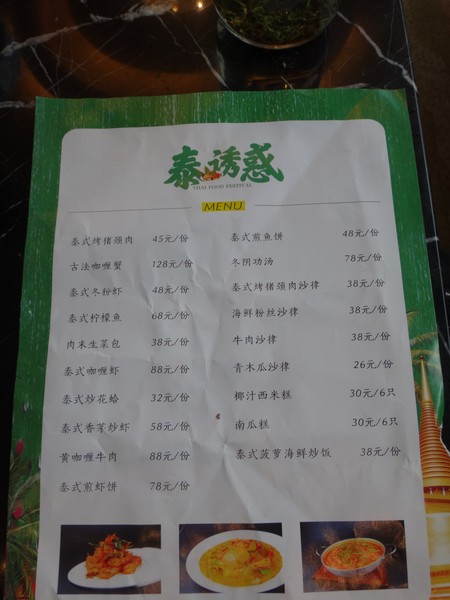 泰诱惑
THAI FOOD FESTIVAL
MENU
泰式烤猪颈肉 45元/份
古法咖喱蟹 128元/份
泰式冬粉虾 48元/份
泰式柠檬鱼 68元/份
肉末生菜包 38元/份
泰式咖喱虾 88元/份
泰式炒花蛤 32元/份
泰式香茅炒虾 58元/份
黄咖喱牛肉 88元/份
泰式煎虾饼 78元/份
泰式煎鱼饼 48元/份
冬阴功汤 78元/份
泰式烤猪颈肉沙律 38元/份
海鲜粉丝沙律 38元/份
牛肉沙律 38元/份
青木瓜沙律 26元/份
椰汁西米糕 30元/6只
南瓜糕 30元/6只
泰式菠萝海鲜炒饭 38元/份